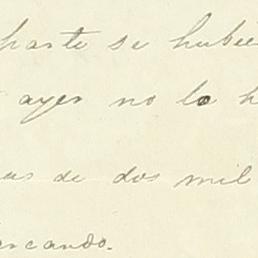 parte se hubie
ayer no lo h
as de dos mil
ercando.